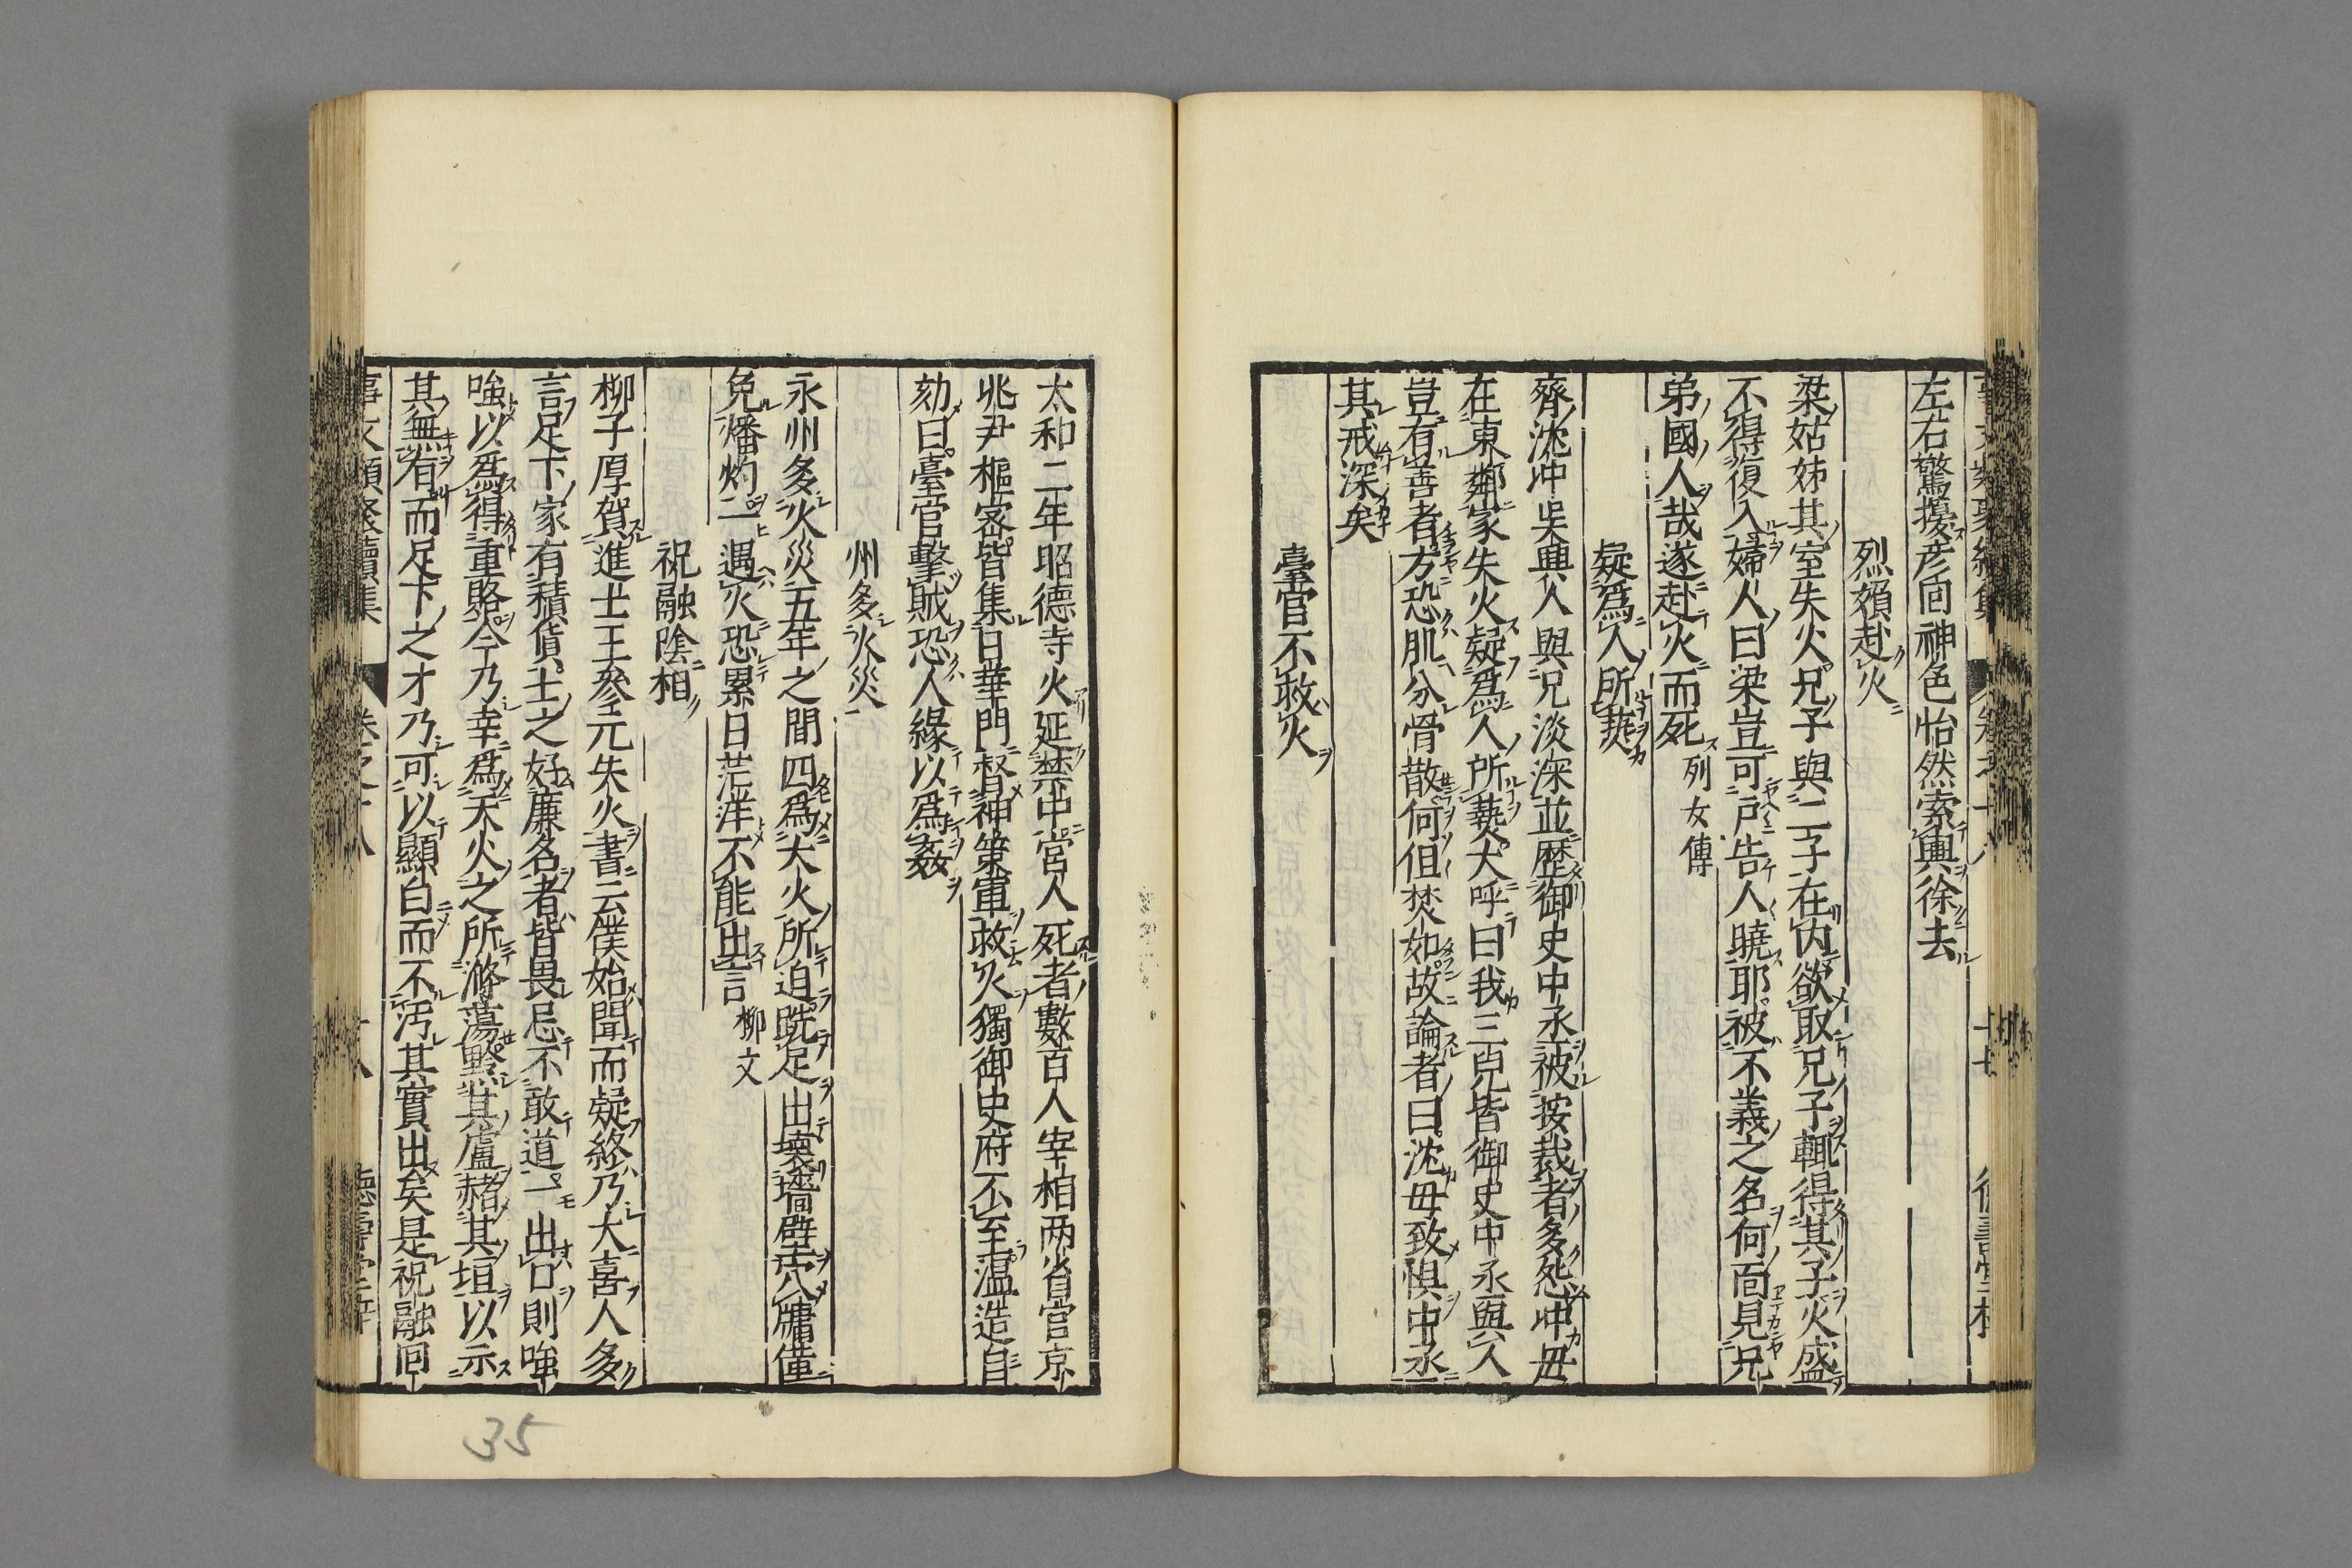 左右驚擾彦囘神色怡然索輿徐去
烈頞赴火
梁姑姊其室失火兄子與二子在內欲取兄子輙得其子火盛
不得復入婦人曰梁豈可戸告人曉耶被不義之名何靣見兄
弟國人哉遂赴火而死 列女傳
疑爲人所爇
齊沈冲吳興人與兄淡深並歴御史中丞被按裁者多怨冲毋
在東鄰家失火疑爲人所爇大呼曰我三兒皆御史中丞與人
豈有善者方恐肌分骨散何但焚如故論者曰沈毋致惧中丞
其戒深矣
臺官不救火
太和二年昭德寺火延禁中宮人死者數百人宰相两省官京
兆尹樞密皆集日華門督神策軍救火獨御史府不至温造自
劾曰臺官擊賊恐人緣以爲姦
州多火災
永州多火災五年之間四爲大火所迫跣足出壊墻壁穴牖僅
免燔灼一遇火恐累日茫洋不能出言 柳文
祝融隂相
柳子厚賀進士王參元失火書云僕始聞而疑終乃大喜人多
言足下家有積貨士之好廉名者皆畏忌不敢道一出口則嗤
嗤以爲得重賂今乃幸爲天火之所滌蕩黔其廬赭其垣以示
其無有而足下之才乃可以顯白而不汚其實出矣是祝融囘
35